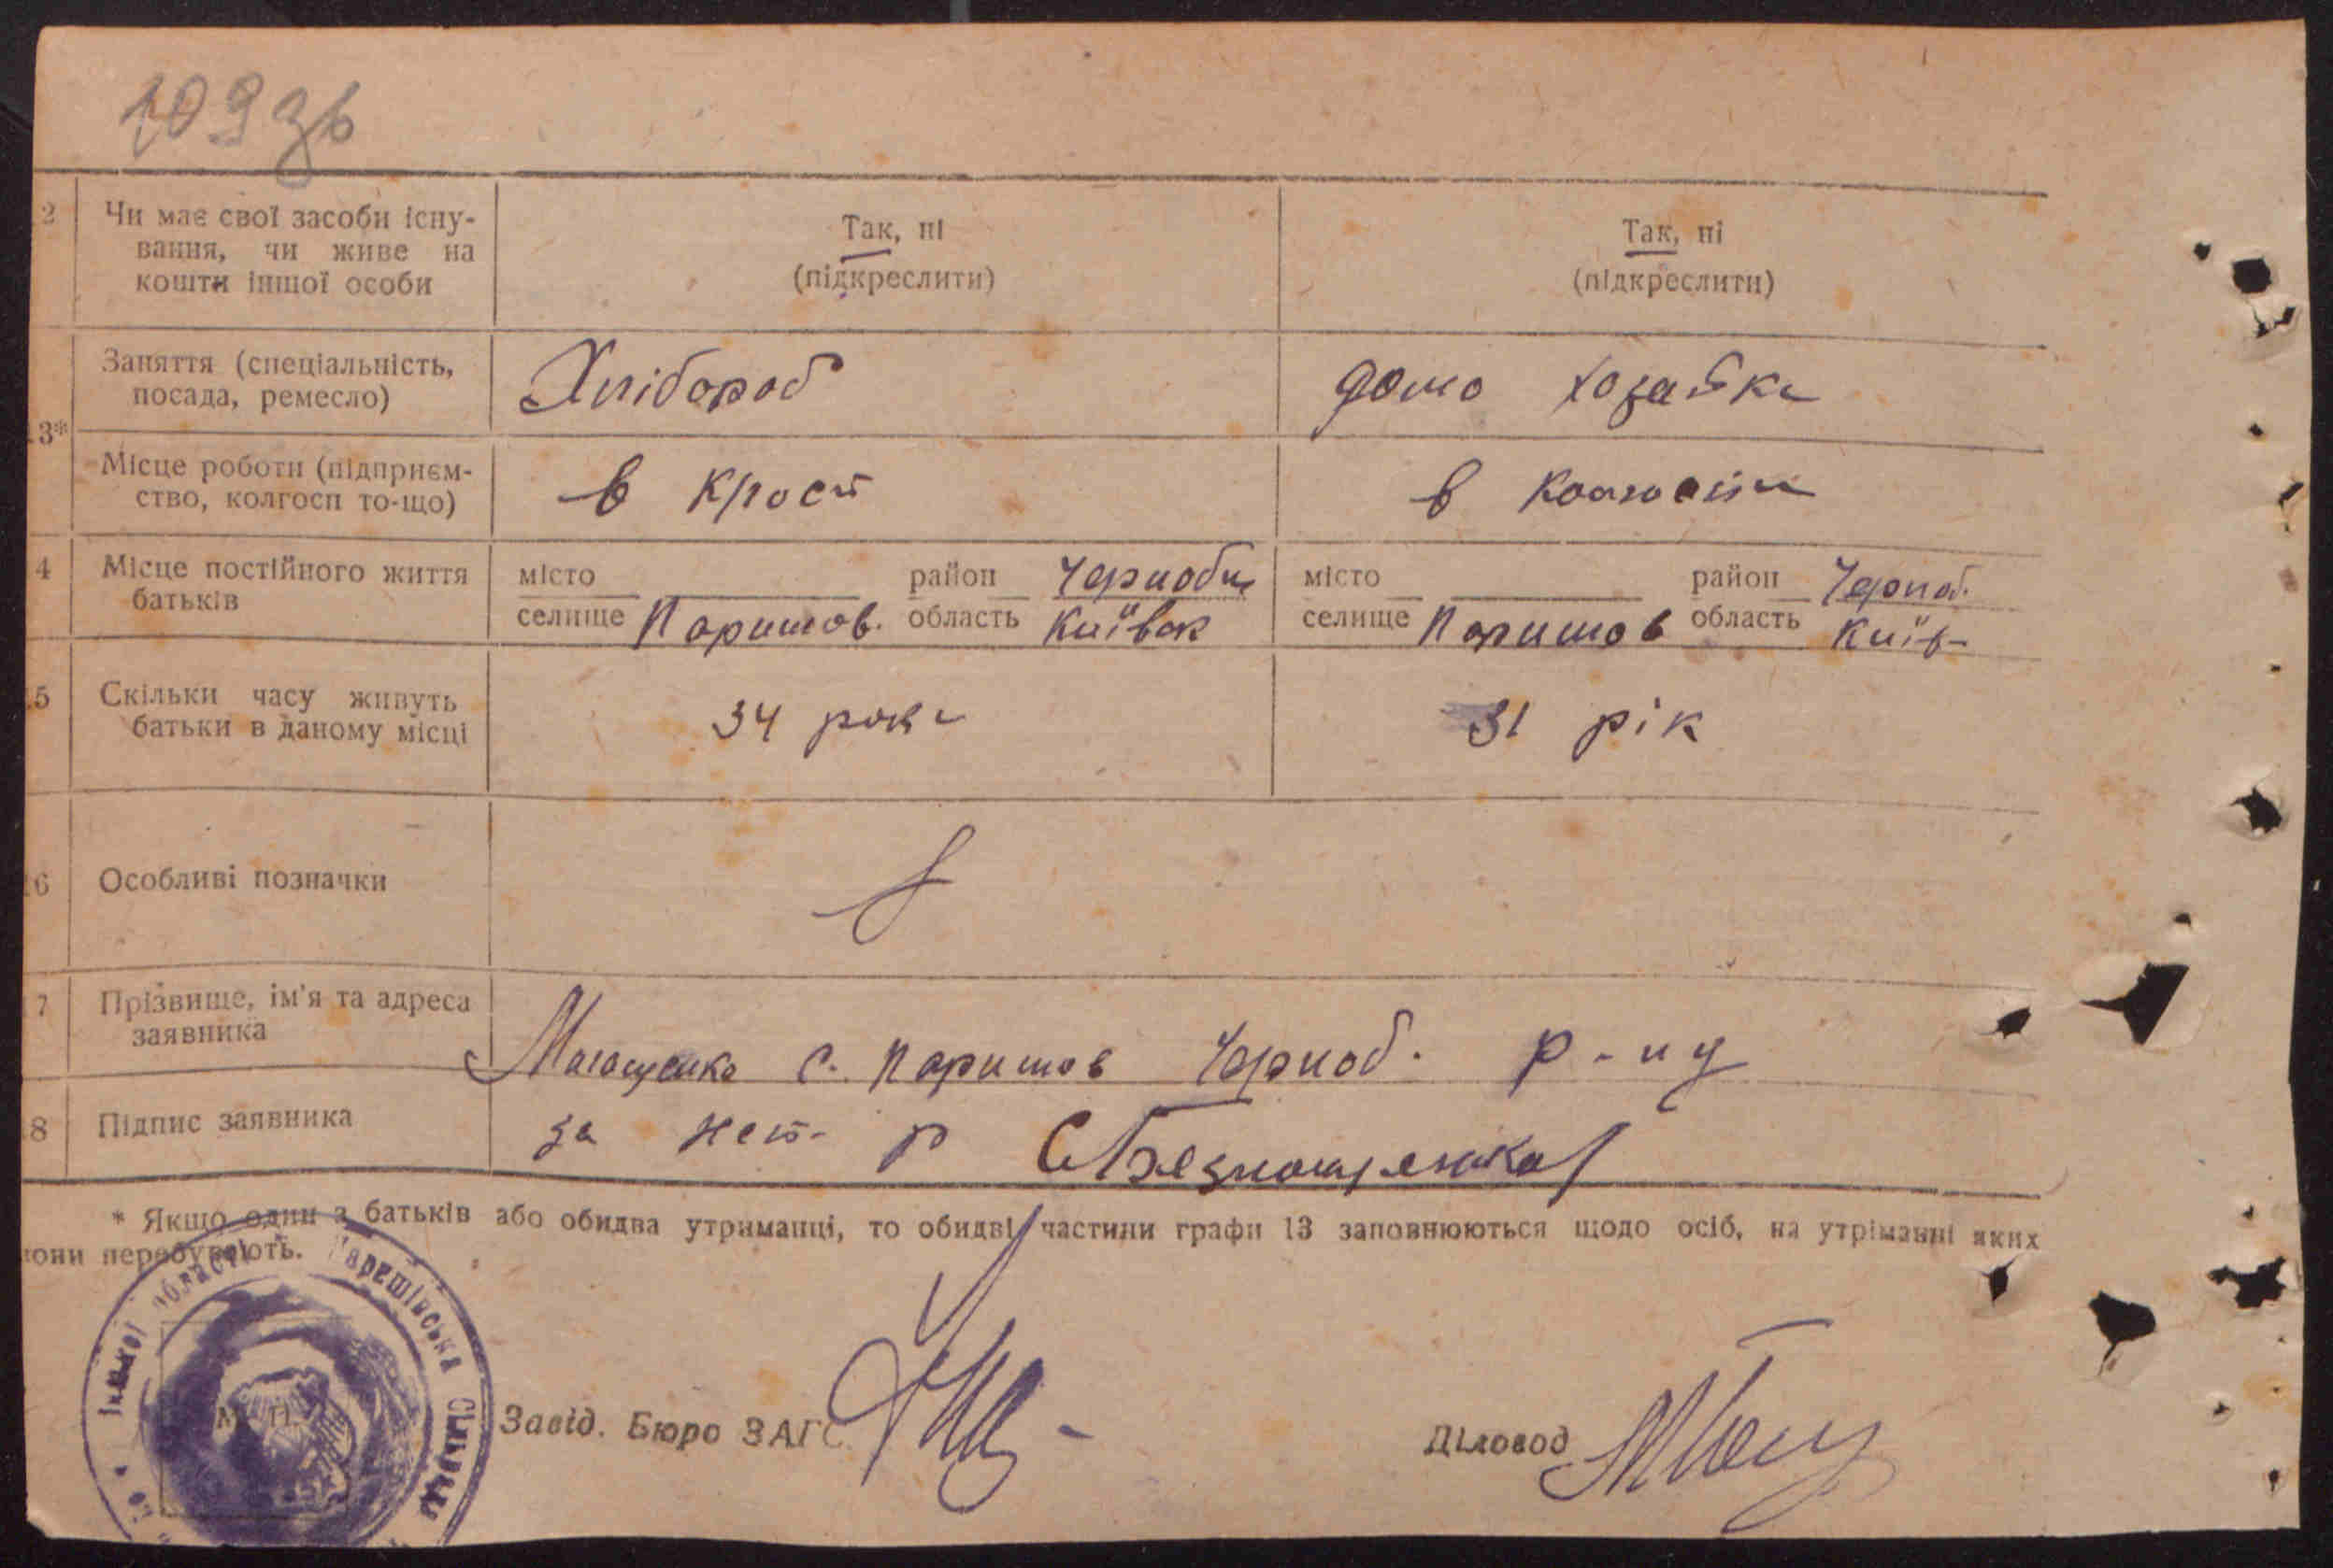 109 зв
2 Чи має свої засоби існу-
вання, чи живе на
кошти іншої особи
Так, ні
(підкреслити)
Так, ні
(підкреслити)
13*
Заняття (спеціальність,
посада, ремесло)
Хлібороб
домо хозайка
Місце роботи (підприєм-
ство, колгосп то-що)
в
в
4 Місце постійного життя
батьків
місто район Чернобил
селище Паришов. область Київск
місто район Черноб.
селище Паришов область Київ-
5 Скільки часу живуть
батьки в даному місці
34 роки
31 рік
6 Особливі позначки
7 Прізвище, ім'я та адреса
заявника
с. Паришов Черноб. р-ну
8 Підпис заявника
за р
* Якщо один з батьків або обидва утриманці, то обидві частини графи 13 заповнюються щодо осіб, на утриманні яких
вони перебувають.
області Паришівська Сільська
М. П.
Завід. Бюро ЗАГС
Діловод